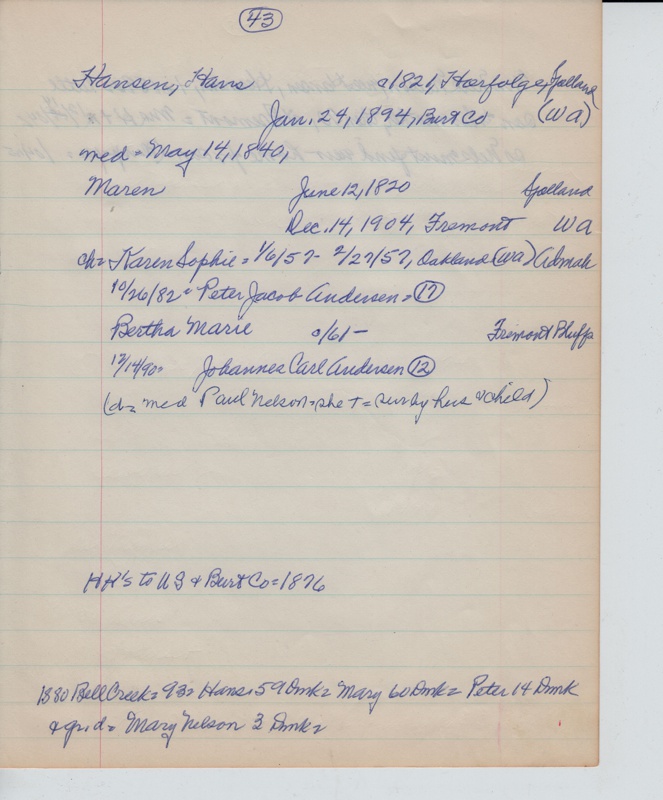 43
Hansen, Hans c1821, Horfolge, Sjolland
Jan. 24, 1894, Burt Co (WA)
med = May 14, 1840,
Maren June 12, 1820 Sjolland
Dec. 14, 1904, Fremont WA
ch = Karen Sophie = 1/6/57 - 2/27/57, Oakland (WA) Admah
10/26/82 = Peter Jacob Andersen = 17
Bertha Marie c/61 - Fremont Bluffs
12/14/90 = Johannes Carl Andersen 12
(d = med Paul Nelson = she + = surv by hus & child)
HH's to US & Burt Co = 1876
1880 Bell Creek = 93 = Hans 59 Dmk = Mary 60 Dmk = Peter 14 Dmk
& gr. d = Mary Nelson 3 Dmk =